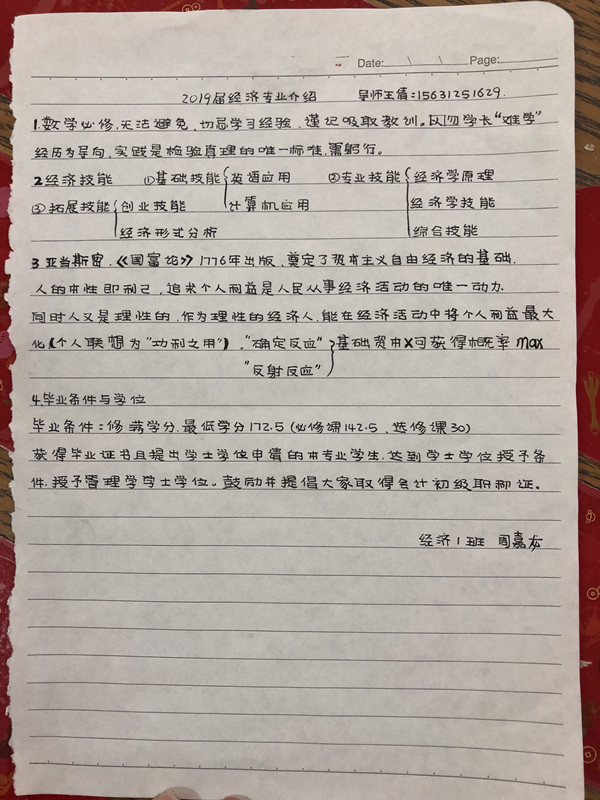 Date: \ \ Page:
2019届经济专业介绍 导师王倩:15631251629.
1.数学必修,无法避免,切忌学习经验,谨记吸取教训。以勿学长“难学”
经历为导向,实践是检验真理的唯一标准,需躬行。
2经济技能 ①基础技能{英语应用 ②专业技能{经济学原理
③拓展技能{创业技能 计算机应用 经济学技能
经济形式分析 综合技能
3.亚当斯密.《国富论》1776年出版,奠定了资本主义自由经济的基础.
人的本性即利己,追求个人利益是人民从事经济活动的唯一动力.
同时人又是理性的,作为理性的经济人,能在经济活动中将个人利益最大
化(个人联想为“功利之用”).“确定反应”}基础资本×可获得概率max
“反射反应”
4.毕业条件与学位
毕业条件:修满学分.最低学分172.5(必修课142.5、选修课30)
获得毕业证书且提出学士学位申请的本专业学生,达到学士学位授予条
件,授予管理学学士学位。鼓励并提倡大家取得会计初级职称证。
经济1班 周嘉友